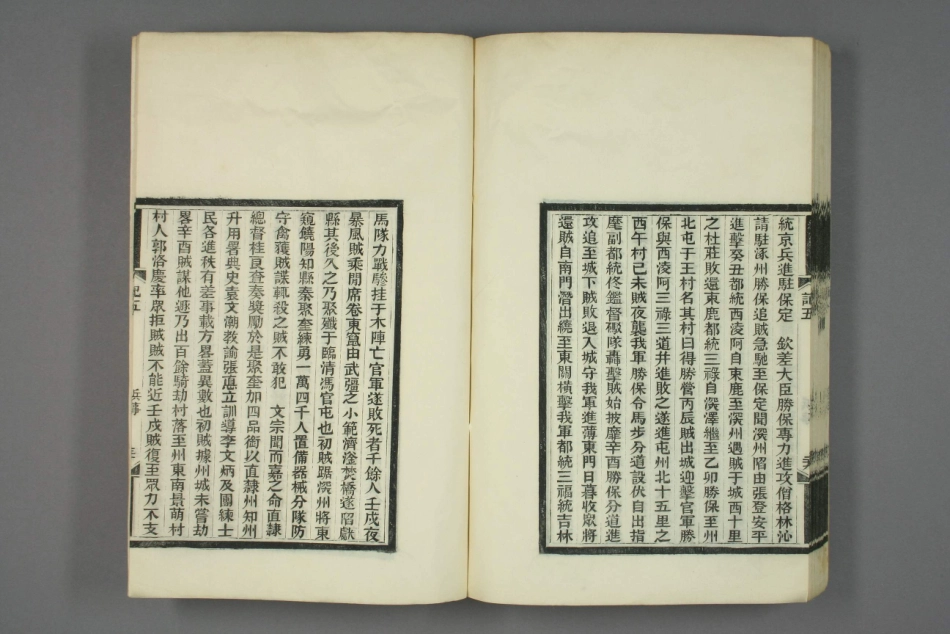 統京兵進駐保定　欽差大臣勝保專力進攻僧格林沁
請駐涿州勝保追賊急馳至保定聞深州陷由張登安平
進擊癸丑都統西凌阿自束鹿至深州遇賊于城西十里
之杜莊敗還束鹿都統三祿自深澤繼至乙卯勝保至州
北屯于王村名其村曰得勝營丙辰賊出城迎擊官軍勝
保與西凌阿三祿三道并進敗之遂進屯州北十五里之
西午村己未賊夜襲我軍勝保令馬步分道設伏自出指
麾副都統佟鑑督礮隊轟擊賊始披靡辛酉勝保分道進
攻追至城下賊敗退入城守我軍進薄東門日暮收眾將
還賊自南門潛出繞至東關橫擊我軍都統三福統吉林
記五
馬隊力戰驂挂于木陣亡官軍遂敗死者千餘人壬戌夜
暴風賊乘間席卷東竄由武彊之小範濟滏焚橋遂陷獻
縣其後久之乃聚殲于臨清馮官屯也初賊踞深州將東
窺饒陽知縣秦聚奎練勇一萬四千人置備器械分隊防
守禽獲賊諜輒殺之賊不敢犯　文宗聞而嘉之命直隸
總督桂良查奏獎勵於是聚奎加四品銜以直隸州知州
升用署典史袁文潮教諭張惪立訓導李文炳及團練士
民各進秩有差事載方畧蓋異數也初賊據州城未嘗劫
畧辛酉賊謀他遯乃出百餘騎劫村落至州東南景萌村
村人郭洛慶率眾拒賊賊不能近壬戌賊復至眾力不支
記五
兵事